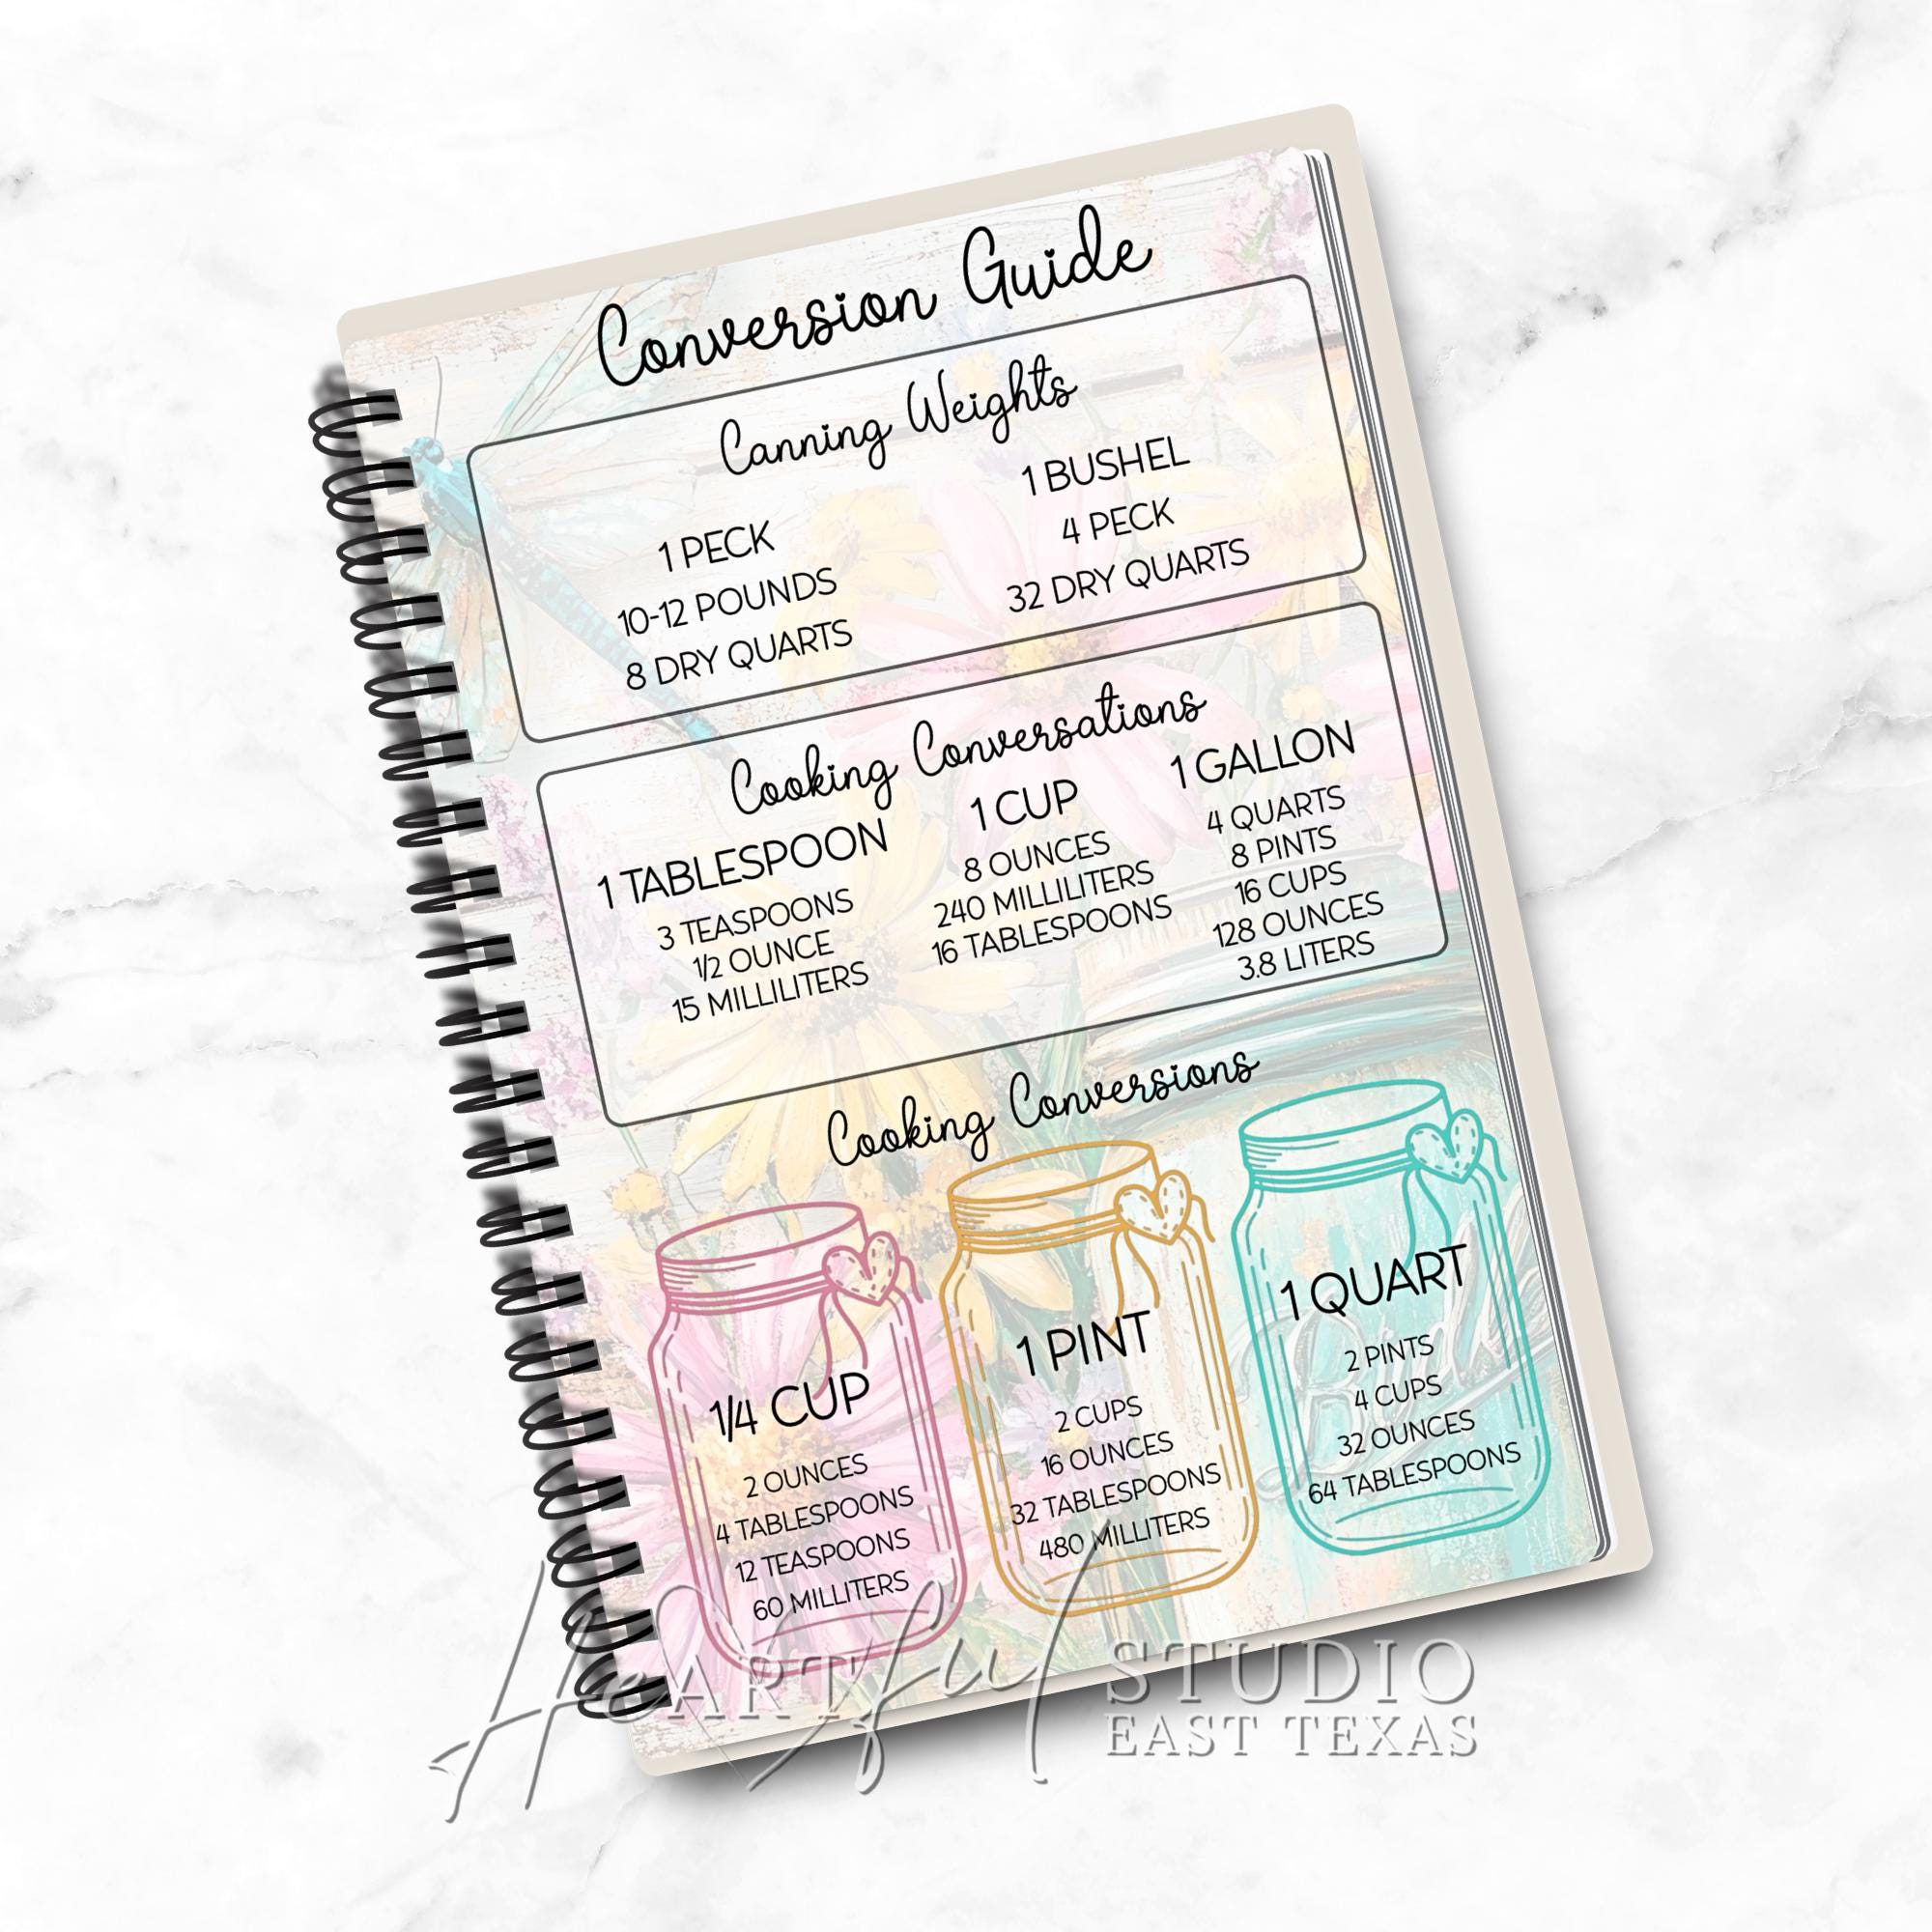 Conversion Guide
Canning Weights
1 PECK
10-12 POUNDS
8 DRY QUARTS
1 BUSHEL
4 PECK
32 DRY QUARTS
Cooking Conversations
1 TABLESPOON
3 TEASPOONS
1/2 OUNCE
15 MILLILITERS
1 CUP
8 OUNCES
240 MILLILITERS
16 TABLESPOONS
1 GALLON
4 QUARTS
8 PINTS
16 CUPS
128 OUNCES
3.8 LITERS
Cooking Conversions
1/4 CUP
2 OUNCES
4 TABLESPOONS
12 TEASPOONS
60 MILLITERS
1 PINT
2 CUPS
16 OUNCES
32 TABLESPOONS
480 MILLITERS
1 QUART
2 PINTS
4 CUPS
32 OUNCES
64 TABLESPOONS
HeARTful STUDIO
EAST TEXAS